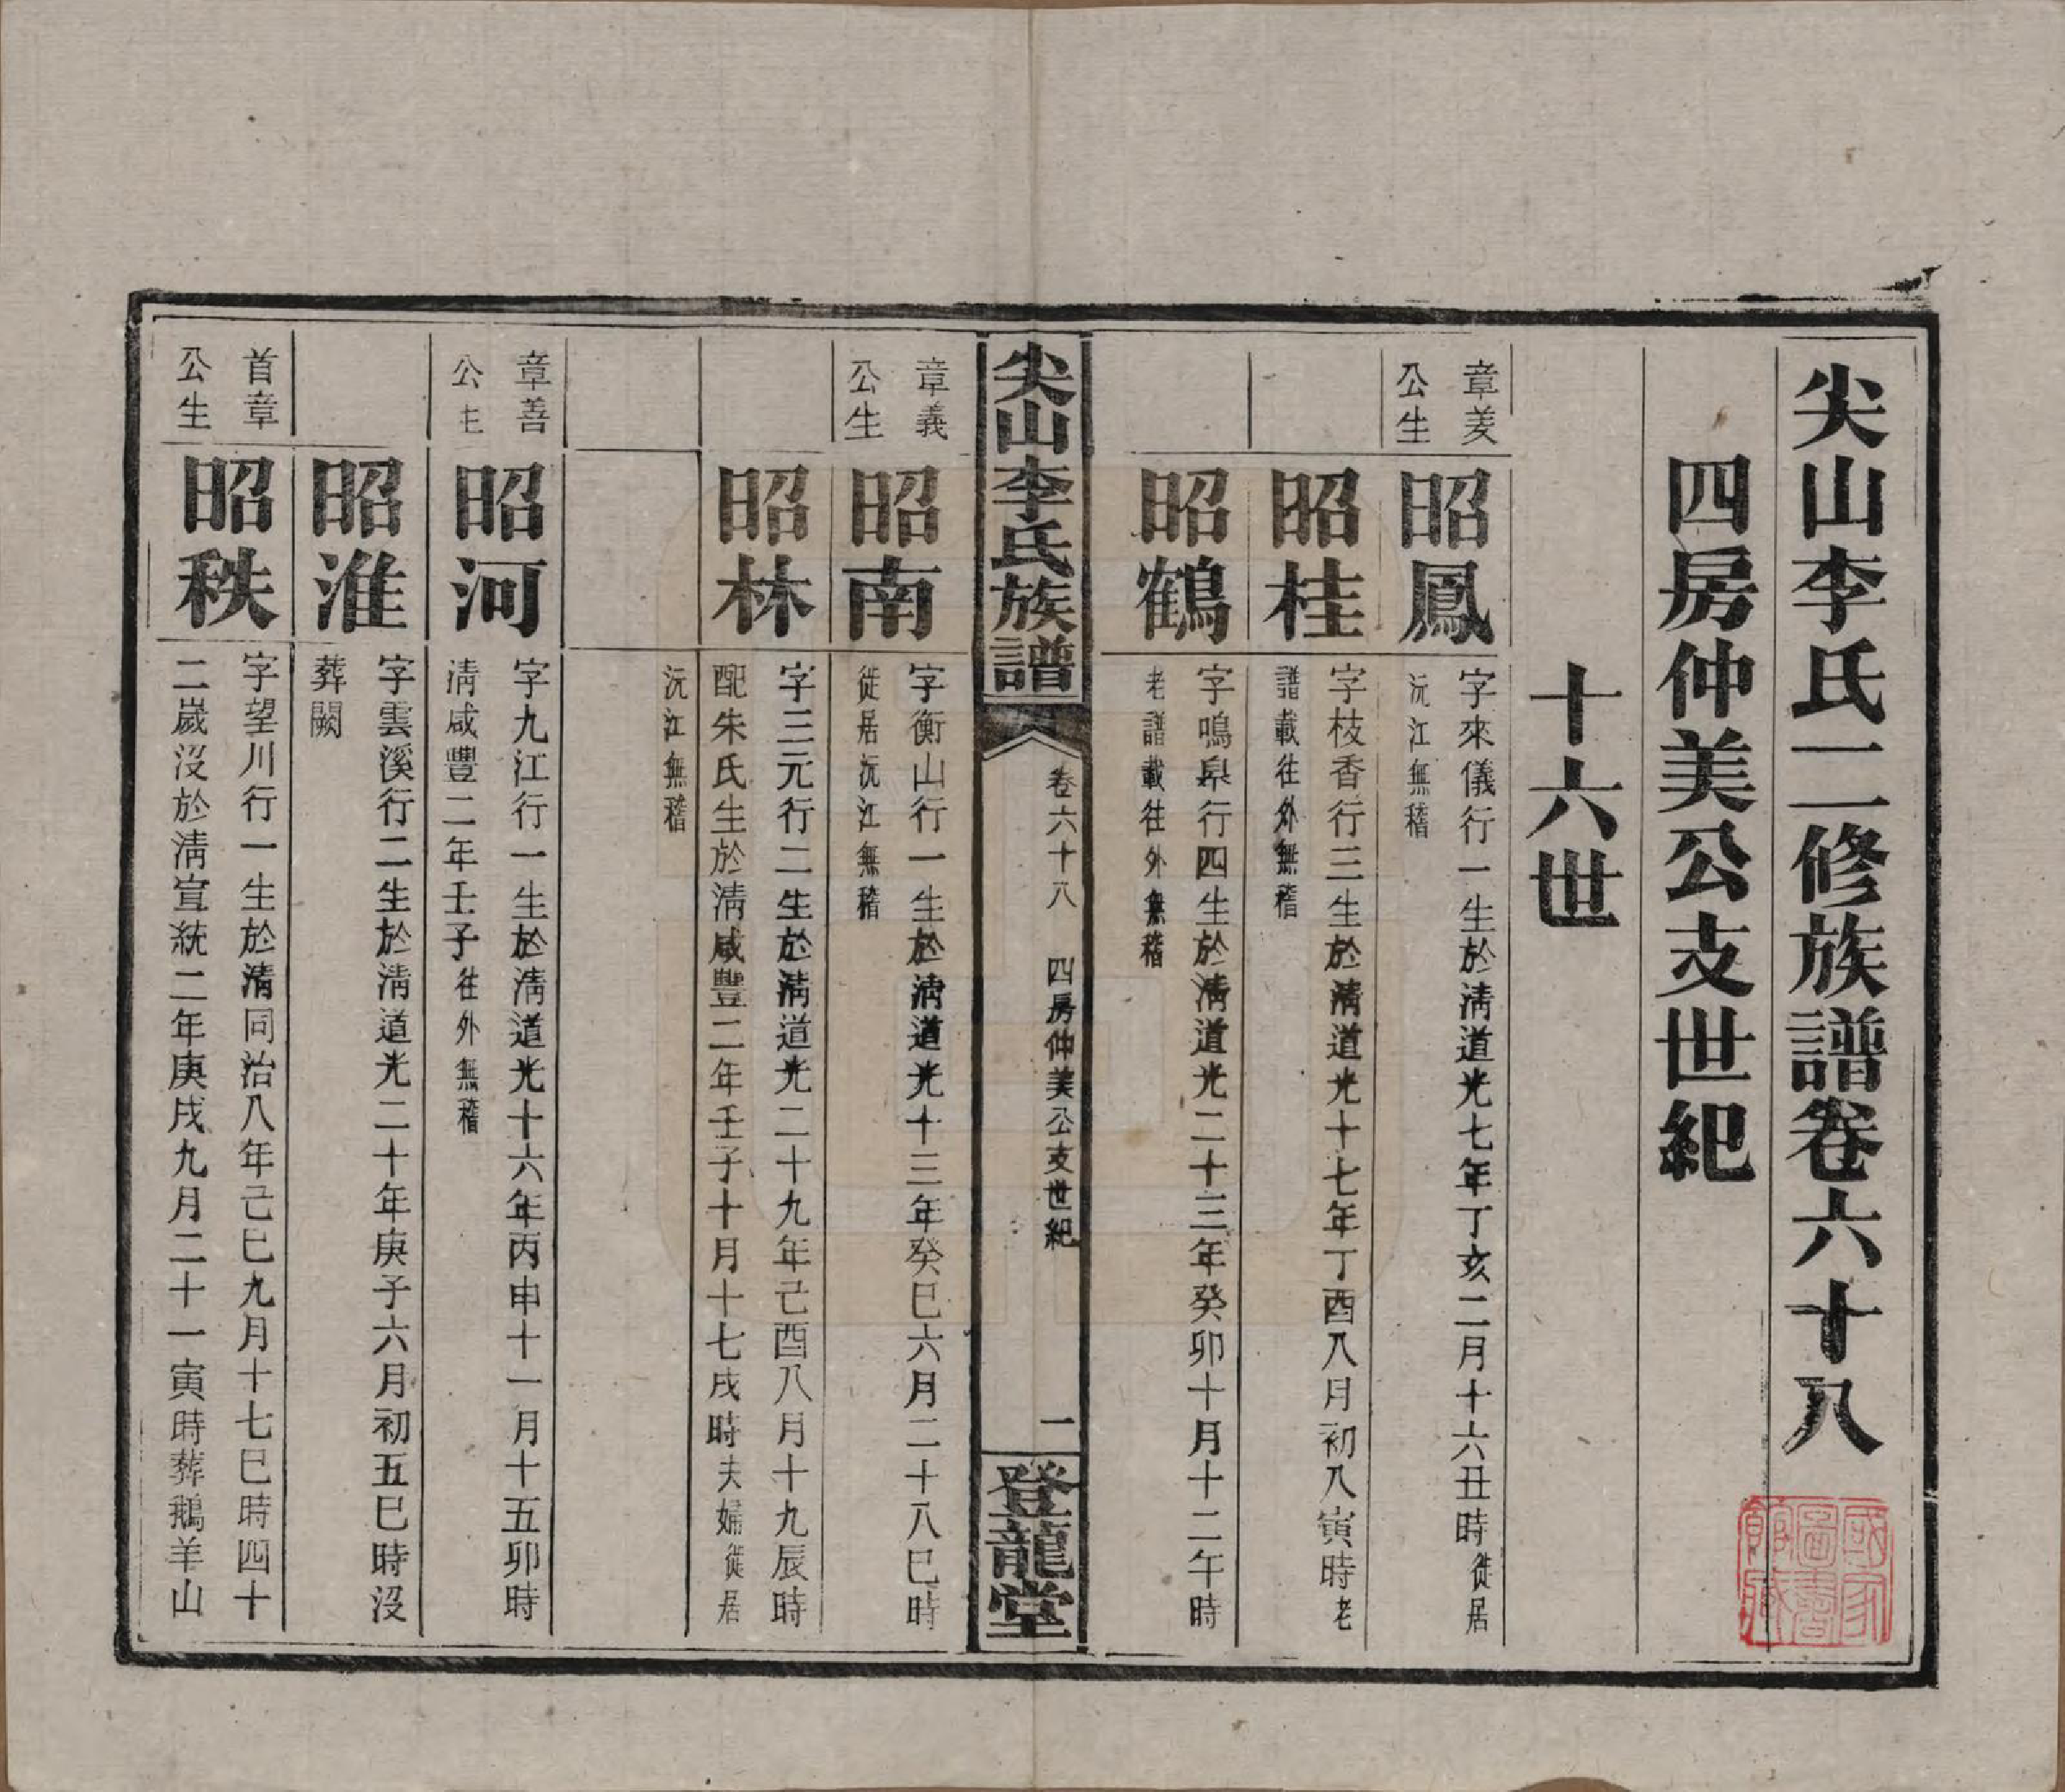 尖山李氏二修族譜卷六十八
四房仲美公支世紀
十六世
章美
公生
昭鳳
字來儀行一生於清道光七年丁亥二月十六丑時徙居
沅江無稽
昭桂
字枝香行三生於清道光十七年丁酉八月初八寅時老
譜載往外無稽
昭鶴
字鳴臯行四生於清道光二十三年癸卯十月十二午時
老譜載往外無稽
尖山李氏族譜
卷六十八 四房仲美公支世紀
一
登龍堂
章義
公生
昭南
字衡山行一生於清道光十三年癸巳六月二十八巳時
徙居沅江無稽
昭林
字三元行二生於清道光二十九年己酉八月十九辰時
配朱氏生於清咸豐二年壬子十月十七戌時夫婦徙居
沅江無稽
章善
公生
昭河
字九江行一生於清道光十六年丙申十一月十五卯時
清咸豐二年壬子往外無稽
昭淮
字雲溪行二生於清道光二十年庚子六月初五巳時沒
葬闕
首章
公生
昭秩
字望川行一生於清同治八年己巳九月十七巳時四十
二歲沒於清宣統二年庚戌九月二十一寅時葬鵝羊山
國家
圖書
館藏